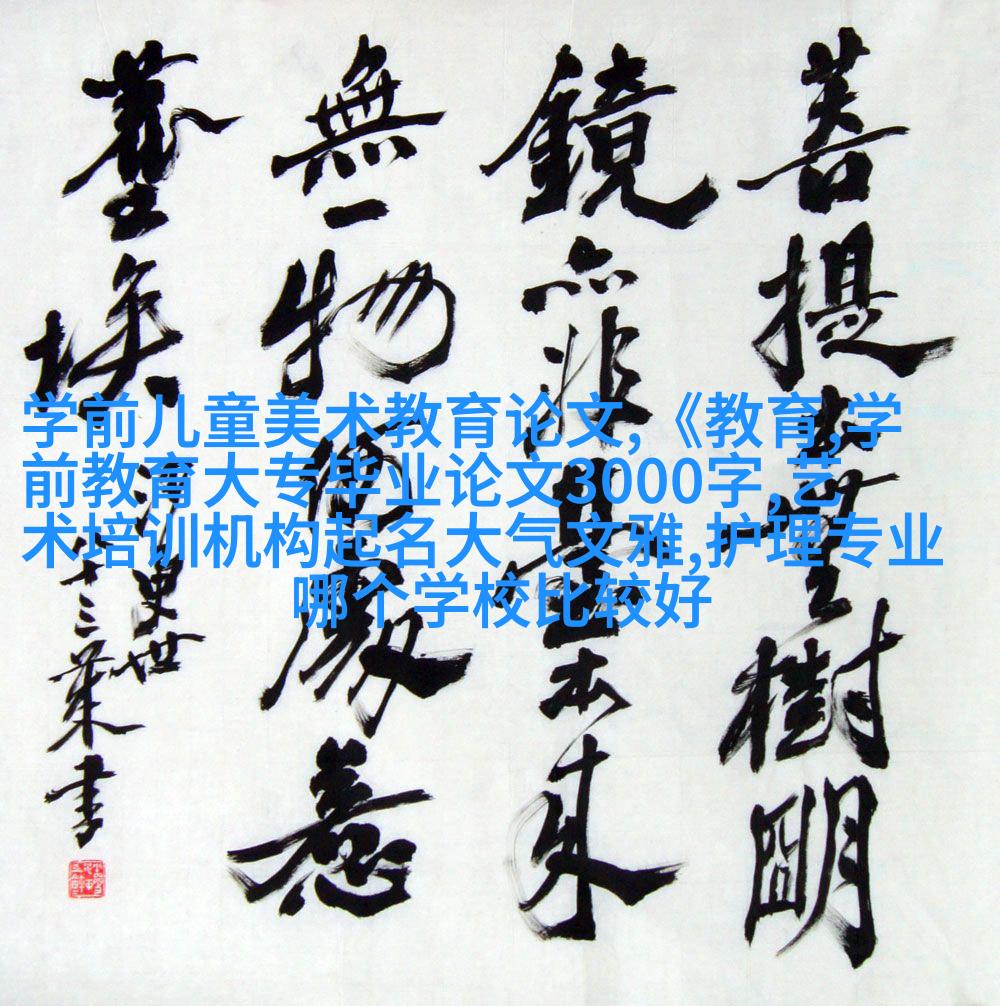 菩提無樹明
鏡亦非臺本來
無一物何處惹
塵埃
學前儿童美术教育论文,《教育,学
前教育大专毕业论文3000字,艺
术培训机构起名大气文雅,护理专业
哪个学校比较好